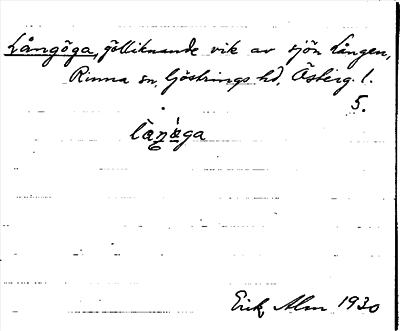 Långöga, göllliknande vik av sjön Lången,
Rinna sn Göstrings hd. Österg. l.
5.
Erik Alm 1930